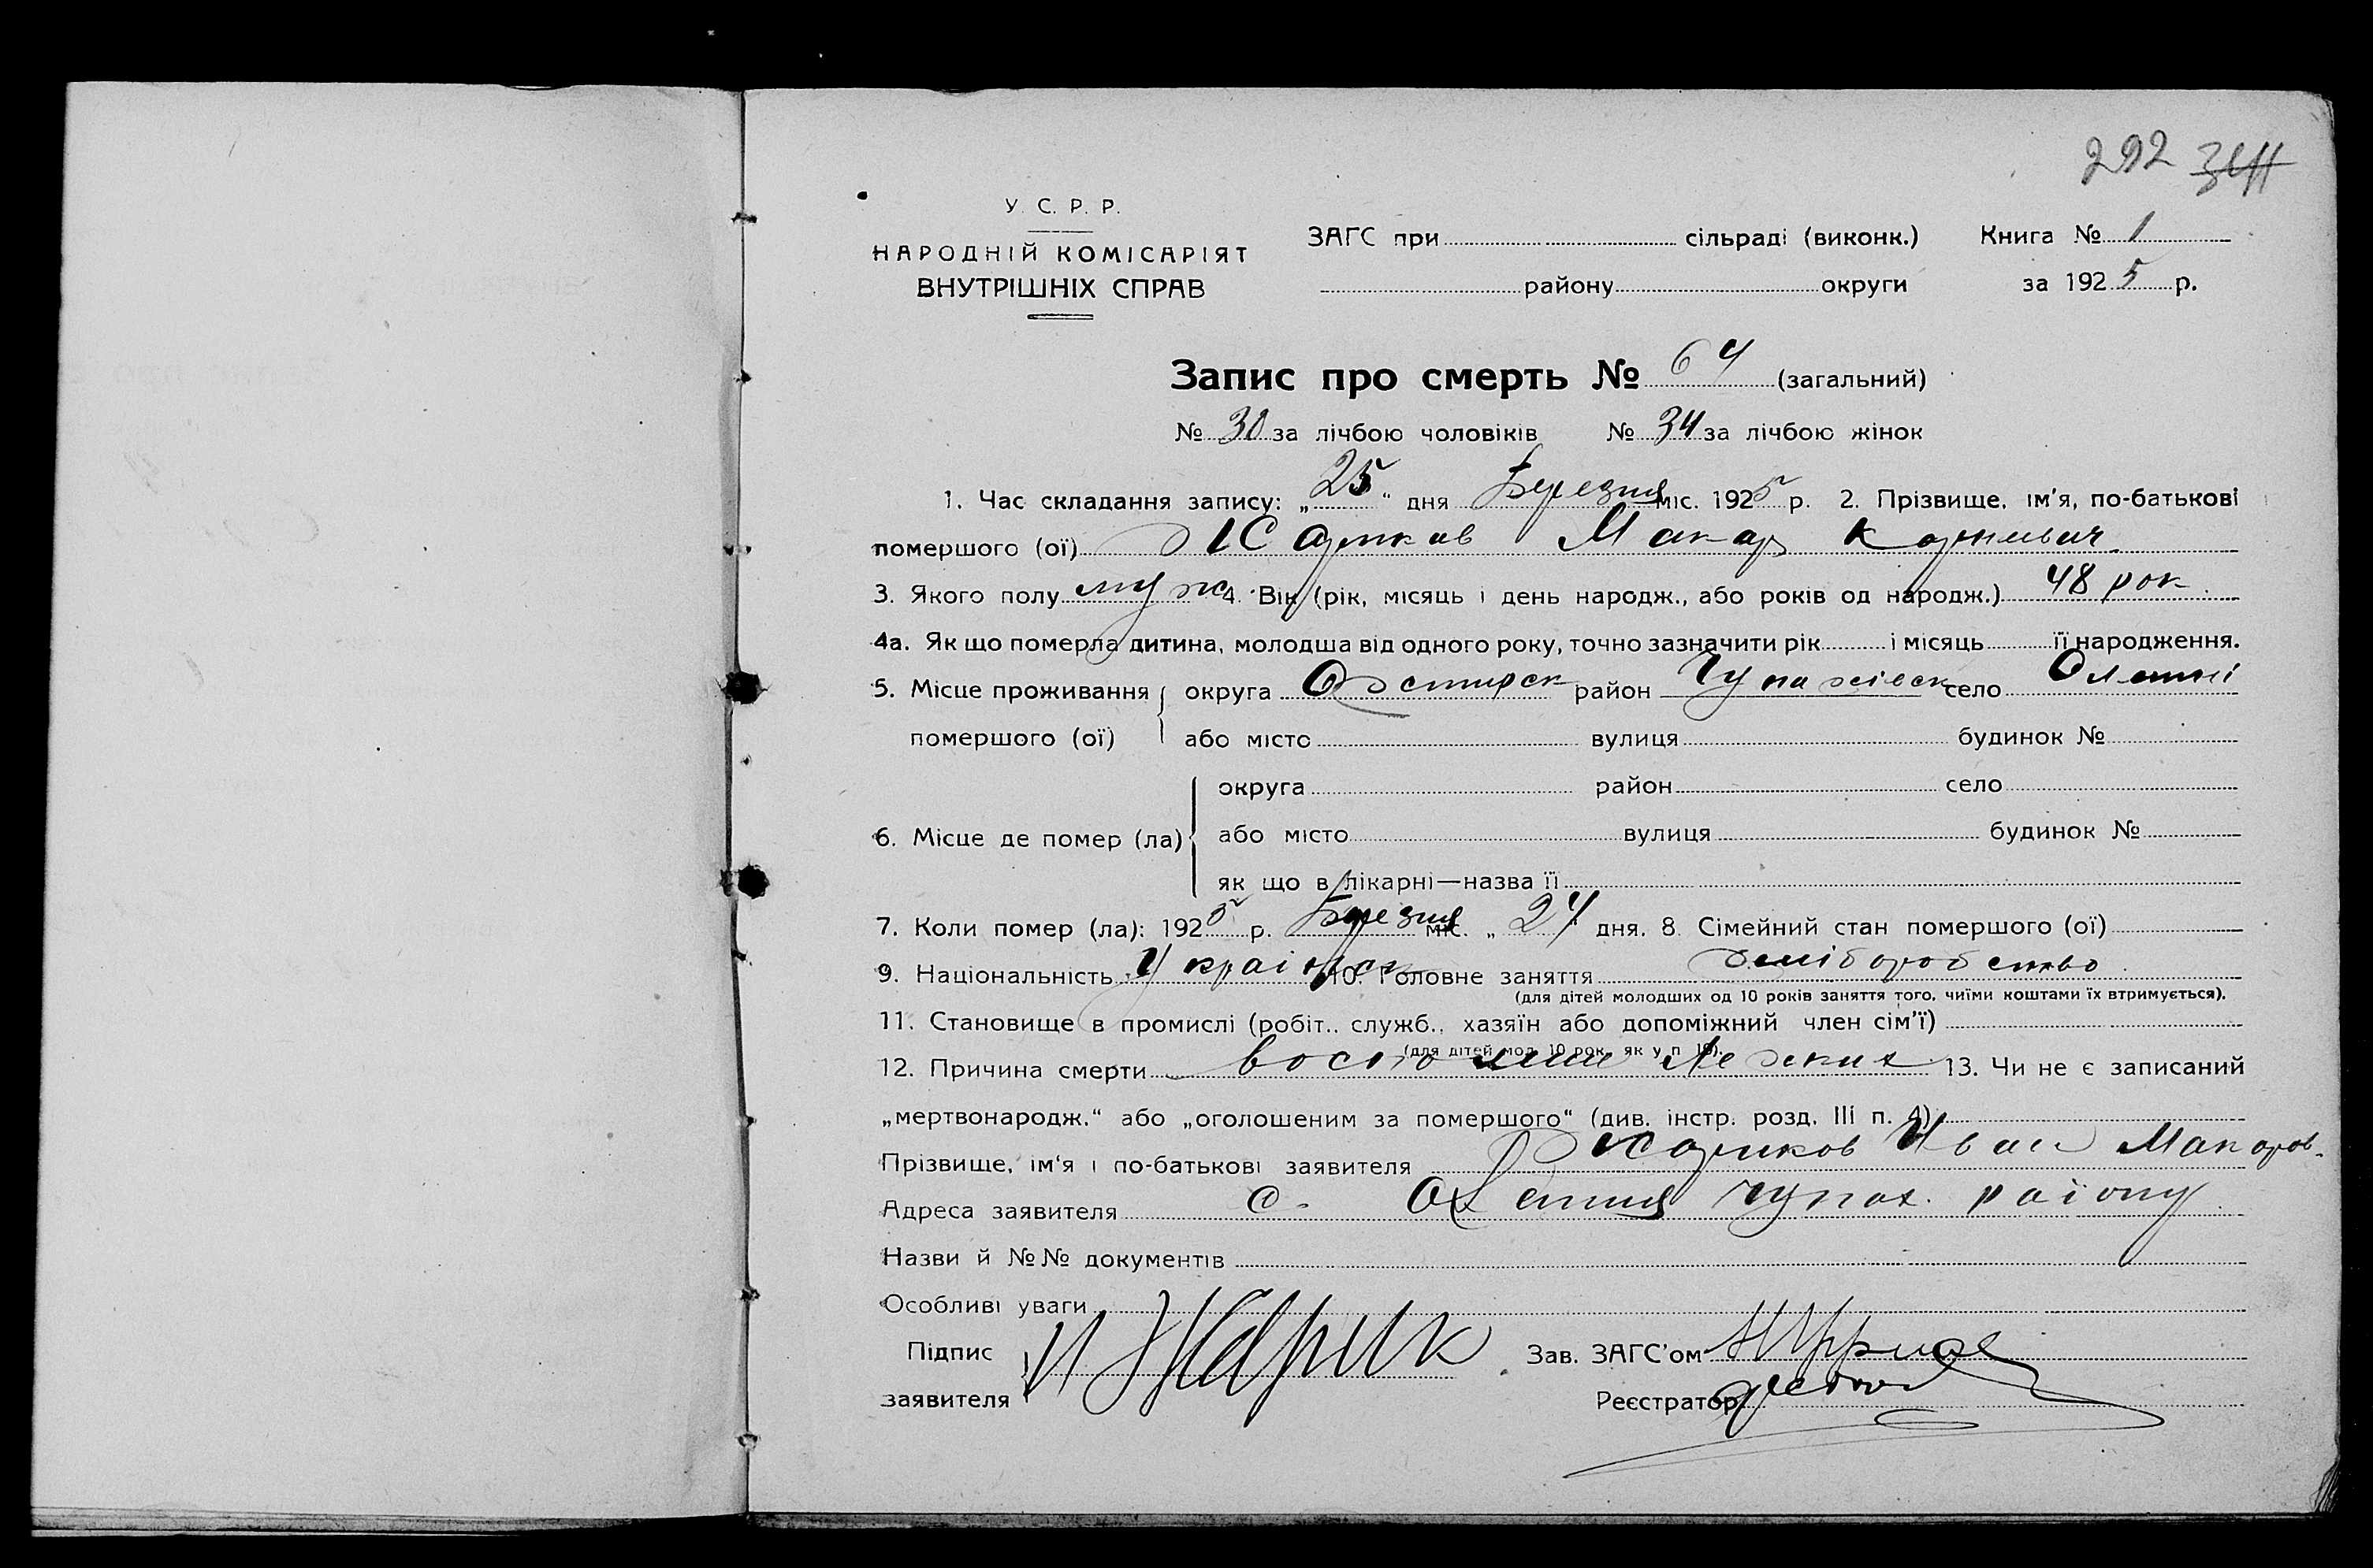 292 344
У. С. Р. Р.
НАРОДНІЙ КОМІСАРІЯТ
ВНУТРІШНІХ СПРАВ
ЗАГС при сільраді (виконк.) Книга № 1
району округи за 1925 р.
Запис про смерть № 64 (загальний)
№ 30 за лічбою чоловіків № 34 за лічбою жінок
1. Час складання запису: „25" дня Березня міс. 1925 р. 2. Прізвище, ім'я, по-батькові
помершого (ої) Жариков Макар Корниевич
3. Якого полу муж 4. Вік (рік, місяць і день народж., або років од народж.) 48 рок.
4а. Як що померла дитина, молодша від одного року, точно зазначити рік і місяць її народження.
5. Місце проживання округа район село
помершого (ої) або місто вулиця будинок №
округа район село
6. Місце де помер (ла) або місто вулиця будинок №
як що в лікарні—назва її
7. Коли помер (ла): 1925 р. Березня міс. „24" дня. 8. Сімейний стан помершого (ої)
9. Національність Україньск 10. Головне заняття хліборобство
(для дітей молодших од 10 років заняття того, чиїми коштами їх втримується).
11. Становище в промислі (робіт., служб., хазяїн або допоміжний член сім'ї)
(для дітей мол. 10 рок. як у п. 10).
12. Причина смерти 13. Чи не є записаний
„мертвонародж." або „оголошеним за помершого" (див. інстр. розд. III п. 4)
Прізвище, ім'я і по-батькові заявителя Жариков Иван Макаров.
Адреса заявителя с. Чупах. раіону
Назви й №№ документів
Особливі уваги
Підпис И Жарик Зав. ЗАГС'ом
заявителя Реєстратор